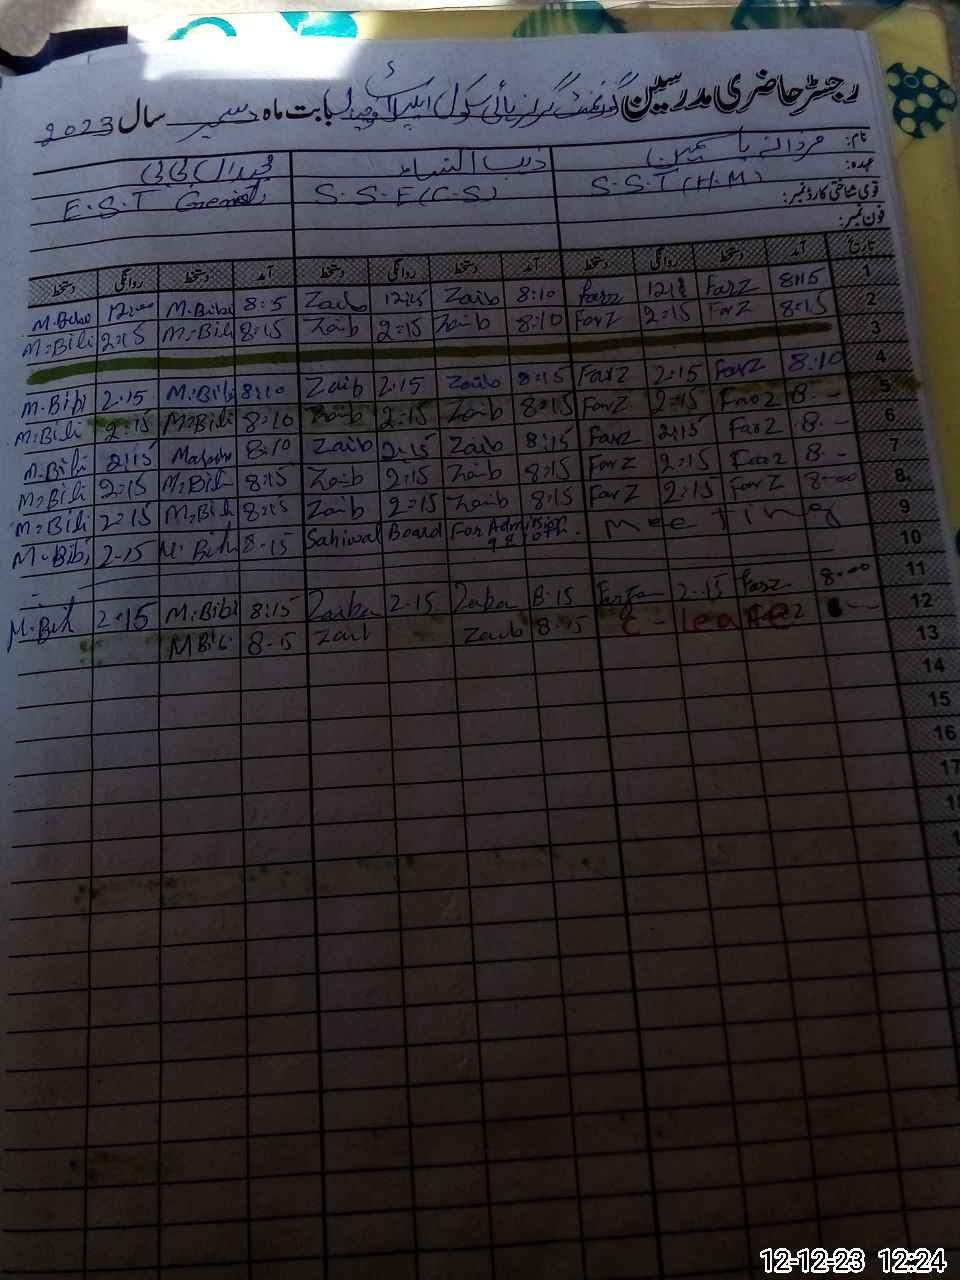 رجسٹر حاضری مدرسین گورنمنٹ گرلز ہائی سکول بابت ماہ دسمبر سال 2023
نام: فرزانہ یاسمین زیب النساء
عہدہ: S.S.T (H.M) S.S.E (C.S) E.S.T General
قومی شناختی کارڈ نمبر:
فون نمبر:
تاریخ آمد دستخط روانگی دستخط آمد دستخط روانگی دستخط آمد دستخط روانگی دستخط
1 8:15 FarZ Farz 8:10 Zaib 12:15 Zaib 8:5 M.Bibi 12:00 M.Bibi
2 8:15 FarZ 2:15 FarZ 8:10 Zaib 2:15 Zaib 8:15 M.Bibi 2:15 M.Bibi
3
4 8:10 FarZ 2.15 FarZ 8:15 Zaib 2.15 Zaib 8:10 M.Bibi 2.15 M.Bibi
5 8.- FarZ 2:15 FarZ 8:15 Zaib 2:15 Zaib 8:10 M.Bibi 2:15 M.Bibi
6 8.- FarZ 2:15 FarZ 8:15 Zaib 2:15 Zaib 8:10 2:15 M.Bibi
7 8.- FarZ 2:15 FarZ 8:15 Zaib 2:15 Zaib 8:15 M.Bibi 2:15 M.Bibi
8 8:00 FarZ 2:15 FarZ 8:15 Zaib 2:15 Zaib 8:15 M.Bibi 2:15 M.Bibi
9 Meeting Sahiwal Board For Admission 9 & 10th. 8-15 M.Bibi 2-15 M.Bibi
10
11 8:00 Farz 2.15 8-15 2-15 8:15 M.Bibi 2.15 M.Bibi
12 C-Leave Zaib 8-15 Zaib 8-15 M Bibi
13
14
15
16
17
12-12-23 12:24